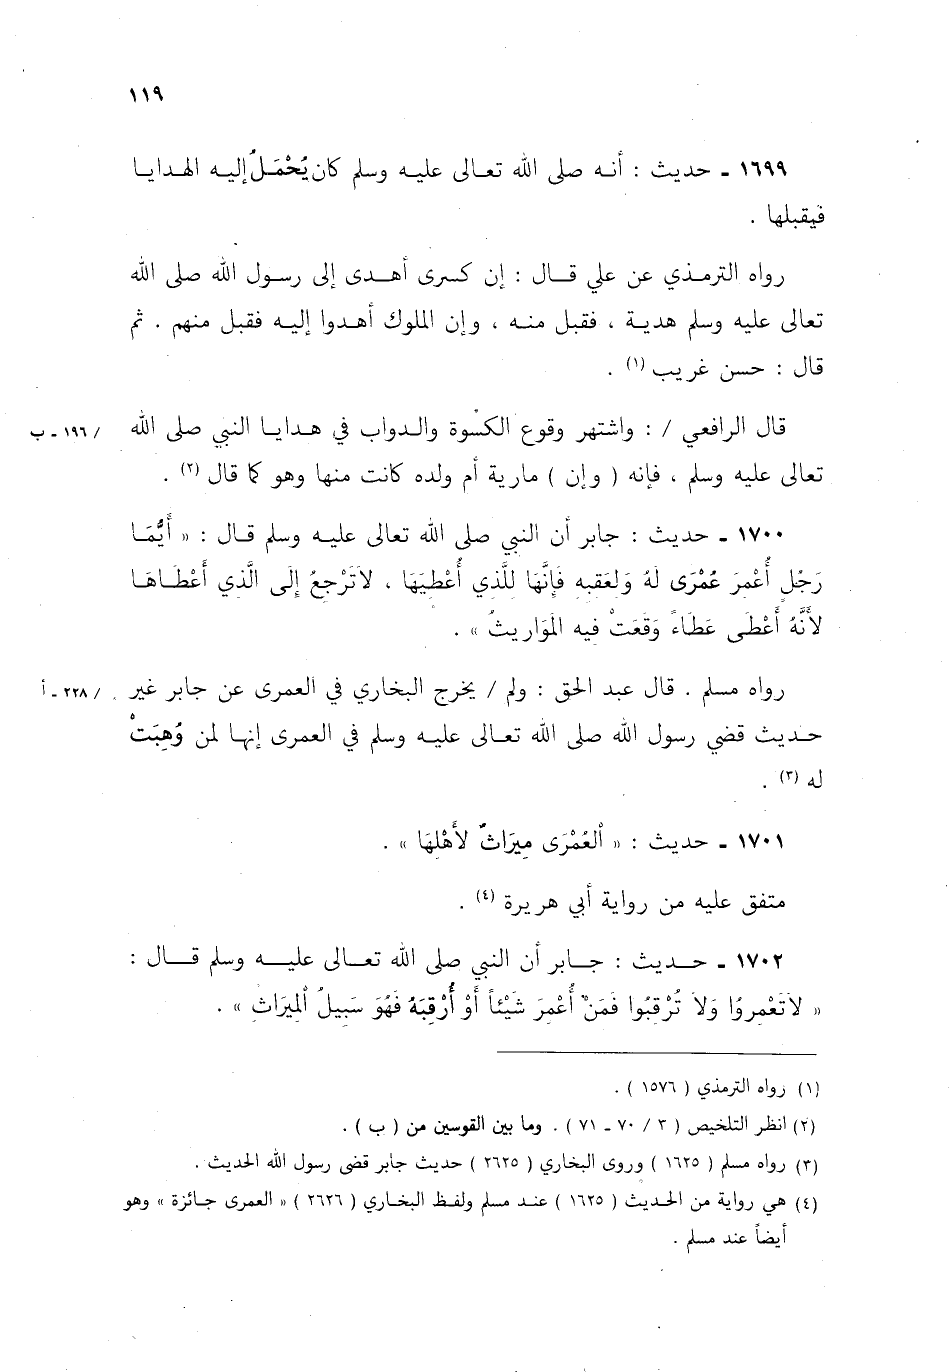 ١١٩
١٦٩٩ ـ حديث : أنه صلى الله تعالى عليه وسلم كان يُحْمَلُ إليه الهدايا
فيقبلها .
رواه الترمذي عن علي قال : إن كسرى أهدى إلى رسول الله صلى الله
تعالى عليه وسلم هدية ، فقبل منه ، وإن الملوك أهدوا إليه فقبل منهم . ثم
قال : حسن غريب (١) .
قال الرافعي / : واشتهر وقوع الكسْوة والدواب في هدايا النبي صلى الله / ١٩٦ ـ ب
تعالى عليه وسلم ، فإنه ( وإن ) مارية أم ولده كانت منها وهو كما قال (٢) .
١٧٠٠ ـ حديث : جابر أن النبي صلى الله تعالى عليه وسلم قال : « أَيُّمَا
رَجُلٍ أُعْمَرَ عُمْرَى لَهُ وَلعَقبه فَإنَّهَا للَّذي أُعْطيَهَا ، لاَتَرْجعُ إلَى الَّذي أَعْطَاهَا
لأَنَّهُ أَعْطَى عَطَاءً وَقَعَتْ فيه المَوَاريثُ » .
رواه مسلم . قال عبد الحق : ولم / يخرج البخاري في العمرى عن جابر غير / ٢٢٨ ـ أ
حديث قضي رسول الله صلى الله تعالى عليه وسلم في العمرى إنها لمن وُهِبَتْ
له (٣) .
١٧٠١ ـ حديث : « أَلعُمْرَى مِيرَاثٌ لأَهْلِهَا » .
متفق عليه من رواية أبي هريرة (٤) .
١٧٠٢ ـ حديث : جابر أن النبي صلى الله تعالى عليه وسلم قال :
« لاَتَعْمروُا وَلاَ تُرْقبُوا فَمَنْ أُعْمرَ شَيْئاً أَوْ أُرْقِبَهُ فَهُوَ سَبيلُ أَلميَراث » .
(١) رواه الترمذي ( ١٥٧٦ ) .
(٢) انظر التلخيص ( ٣ / ٧٠ ـ ٧١ ) . وما بين القوسين من ( ب ) .
(٣) رواه مسلم ( ١٦٢٥ ) وروى البخاري ( ٢٦٢٥ ) حديث جابر قضى رسول الله الحديث .
(٤) هي رواية من الحديث ( ١٦٢٥ ) عند مسلم ولفظ البخاري ( ٢٦٢٦ ) « العمرى جائزة » وهو
أيضاً عند مسلم .